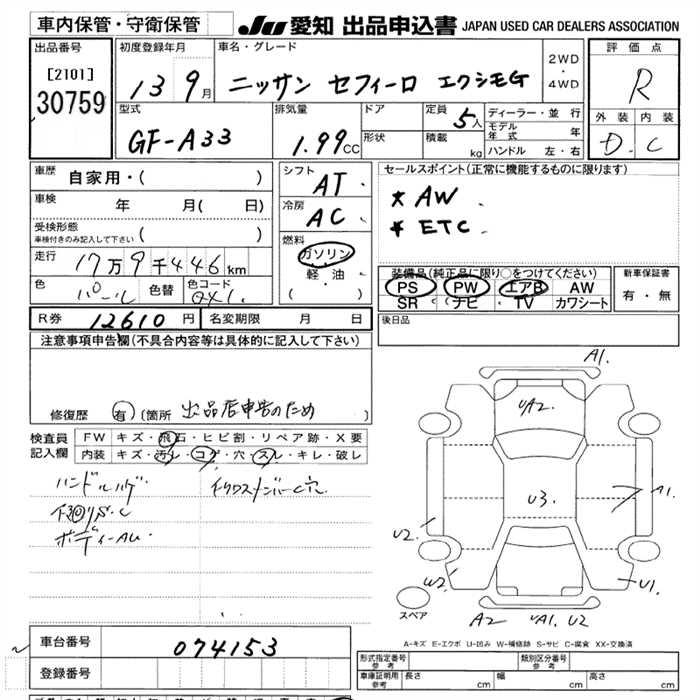 車内保管・守衛保管
JU 愛知 出品申込書 JAPAN USED CAR DEALERS ASSOCIATION
出品番号
[2101]
30759
初度登録年月
13 9月
車名・グレード
ニッサン セフィーロ エクシモG
2WD
・
4WD
評価点
R
外装 内装
D. C
型式
GF-A33
排気量
1.99CC
ドア
形状
定員
5人
積載
kg
ディーラー・並行
モデル年式 年
ハンドル 左・右
車歴
自家用・( )
車検
年 月( 日)
受検形態
車検付きのみ記入して下さい ( )
走行
17万9千446km
色
パール
色替
色コード
041.
シフト
AT.
冷房
AC.
燃料
ガソリン
・
軽・油
( )
セールスポイント(正常に機能するものに限ります)
* AW.
* ETC.
装備品(純正品に限り○をつけてください)
PS PW エアB AW
SR ナビ TV カワシート
新車保証書
有・無
R券 12610円 名変期限 月 日
後日品
注意事項申告欄(不具合内容等は具体的に記入して下さい)
修復歴 有(箇所 出品店申告のため
検査員
記入欄
FW キズ・飛石・ヒビ割・リペア跡・X要
内装 キズ・汚レ・コゲ・穴・スレ・キレ・破レ
ハンドルハゲ
下回りS.C
ボディーAU
A1.
UA2
U3.
A1.
U2
W2
U1.
スペア
A2 UA1. U2
A-キズ E-エクボ U-凹み W-補修跡 S-サビ C-腐食 XX-交換済
車台番号 074153
登録番号
形式指定番号
参考
類別区分番号
参考
車庫証明用
参考
長さ cm 幅 cm 高さ cm